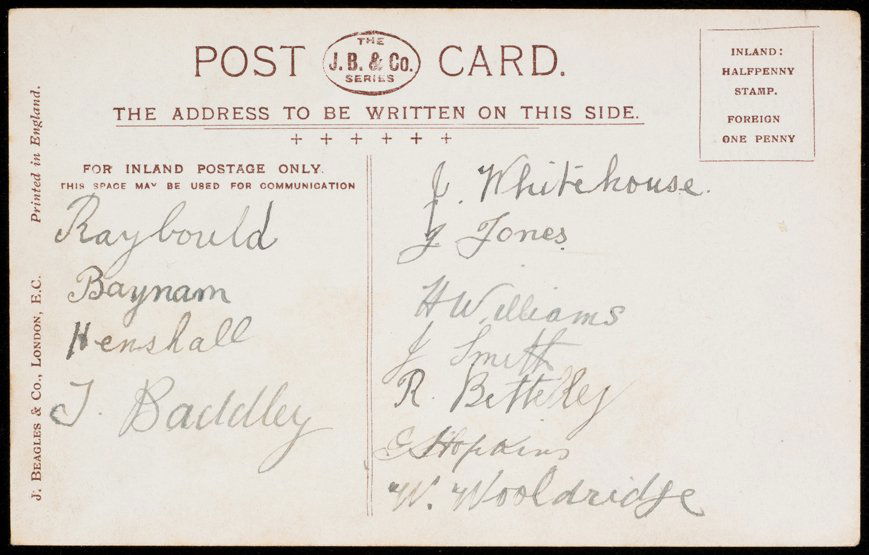 POST THE J. B. & Co. SERIES CARD.
THE ADDRESS TO BE WRITTEN ON THIS SIDE.
INLAND:
HALFPENNY
STAMP.
FOREIGN
ONE PENNY
FOR INLAND POSTAGE ONLY.
THIS SPACE MAY BE USED FOR COMMUNICATION
Raybould
Baynam
Henshall
J. Baddley
J. Whitehouse.
J Jones
H Williams
J Smith
R. Betteley
Hopkins
W. Wooldridge
J. BEAGLES & CO., LONDON, E.C. Printed in England.